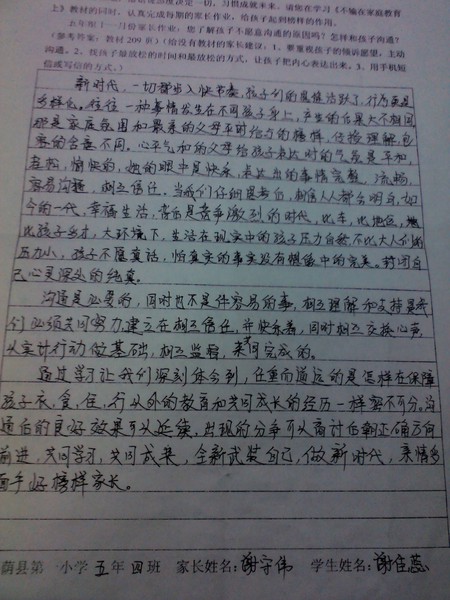 上》教材的同时，认真完成每期的家长作业，给孩子起到榜样的作用。
五年级11一月份家长作业：您了解孩子不愿意沟通的原因吗？怎样和孩子沟通？
（参考答案：教材209页）（给没有教材的家长建议：1、要重视孩子的倾诉愿望，主动
沟通。2、找孩子最放松的时间和最放松的方式，让孩子把内心表达出来。3、用手机短
信或写信的方式。）
新时代，一切都步入快节奏，孩子们的思维活跃了，行为更是
多样化。往往一种事情发生在不同孩子身上，产生的后果大不相同
那是家庭氛围和最亲的父母平时给与的榜样，任务理解包
容的含意不同。心平气和的父母给孩子表达时的气氛是平和，
轻松，愉快的，她的眼中是快乐，表达出的事情完整，流畅，
容易沟通，相互信任。当我们仔细思考后，相信人人都会明白，如
今的一代，幸福生活，背后是竞争激烈的时代，比车，比地位，
比孩子多才，大环境下，生活在现实中的孩子压力自然不比大人们的
压力小，孩子不愿真话，怕真实的事实没有想像中的完美。封闭自
己心灵深处的纯真。
沟通是必要的，同时也不是件容易的事，相互理解和支持是我
们必须共同努力，建立在相互信任，并快乐着，同时相互交换心声，
从实际行动做基础，相互监督，来共同完成的。
通过学习让我们深刻体会到，任重而道远的是怎样在保障
孩子衣，食，住，行以外的教育和共同成长的经历一样密不可分。沟
通后的良好效果可以延续，出现的分争可以商讨后朝正确方向
前进，共同学习，共同成长，全新武装自己，做新时代，亲情多
面手好榜样家长。
荫县第一小学五年四班 家长姓名：谢守伟 学生姓名：谢佳蕊